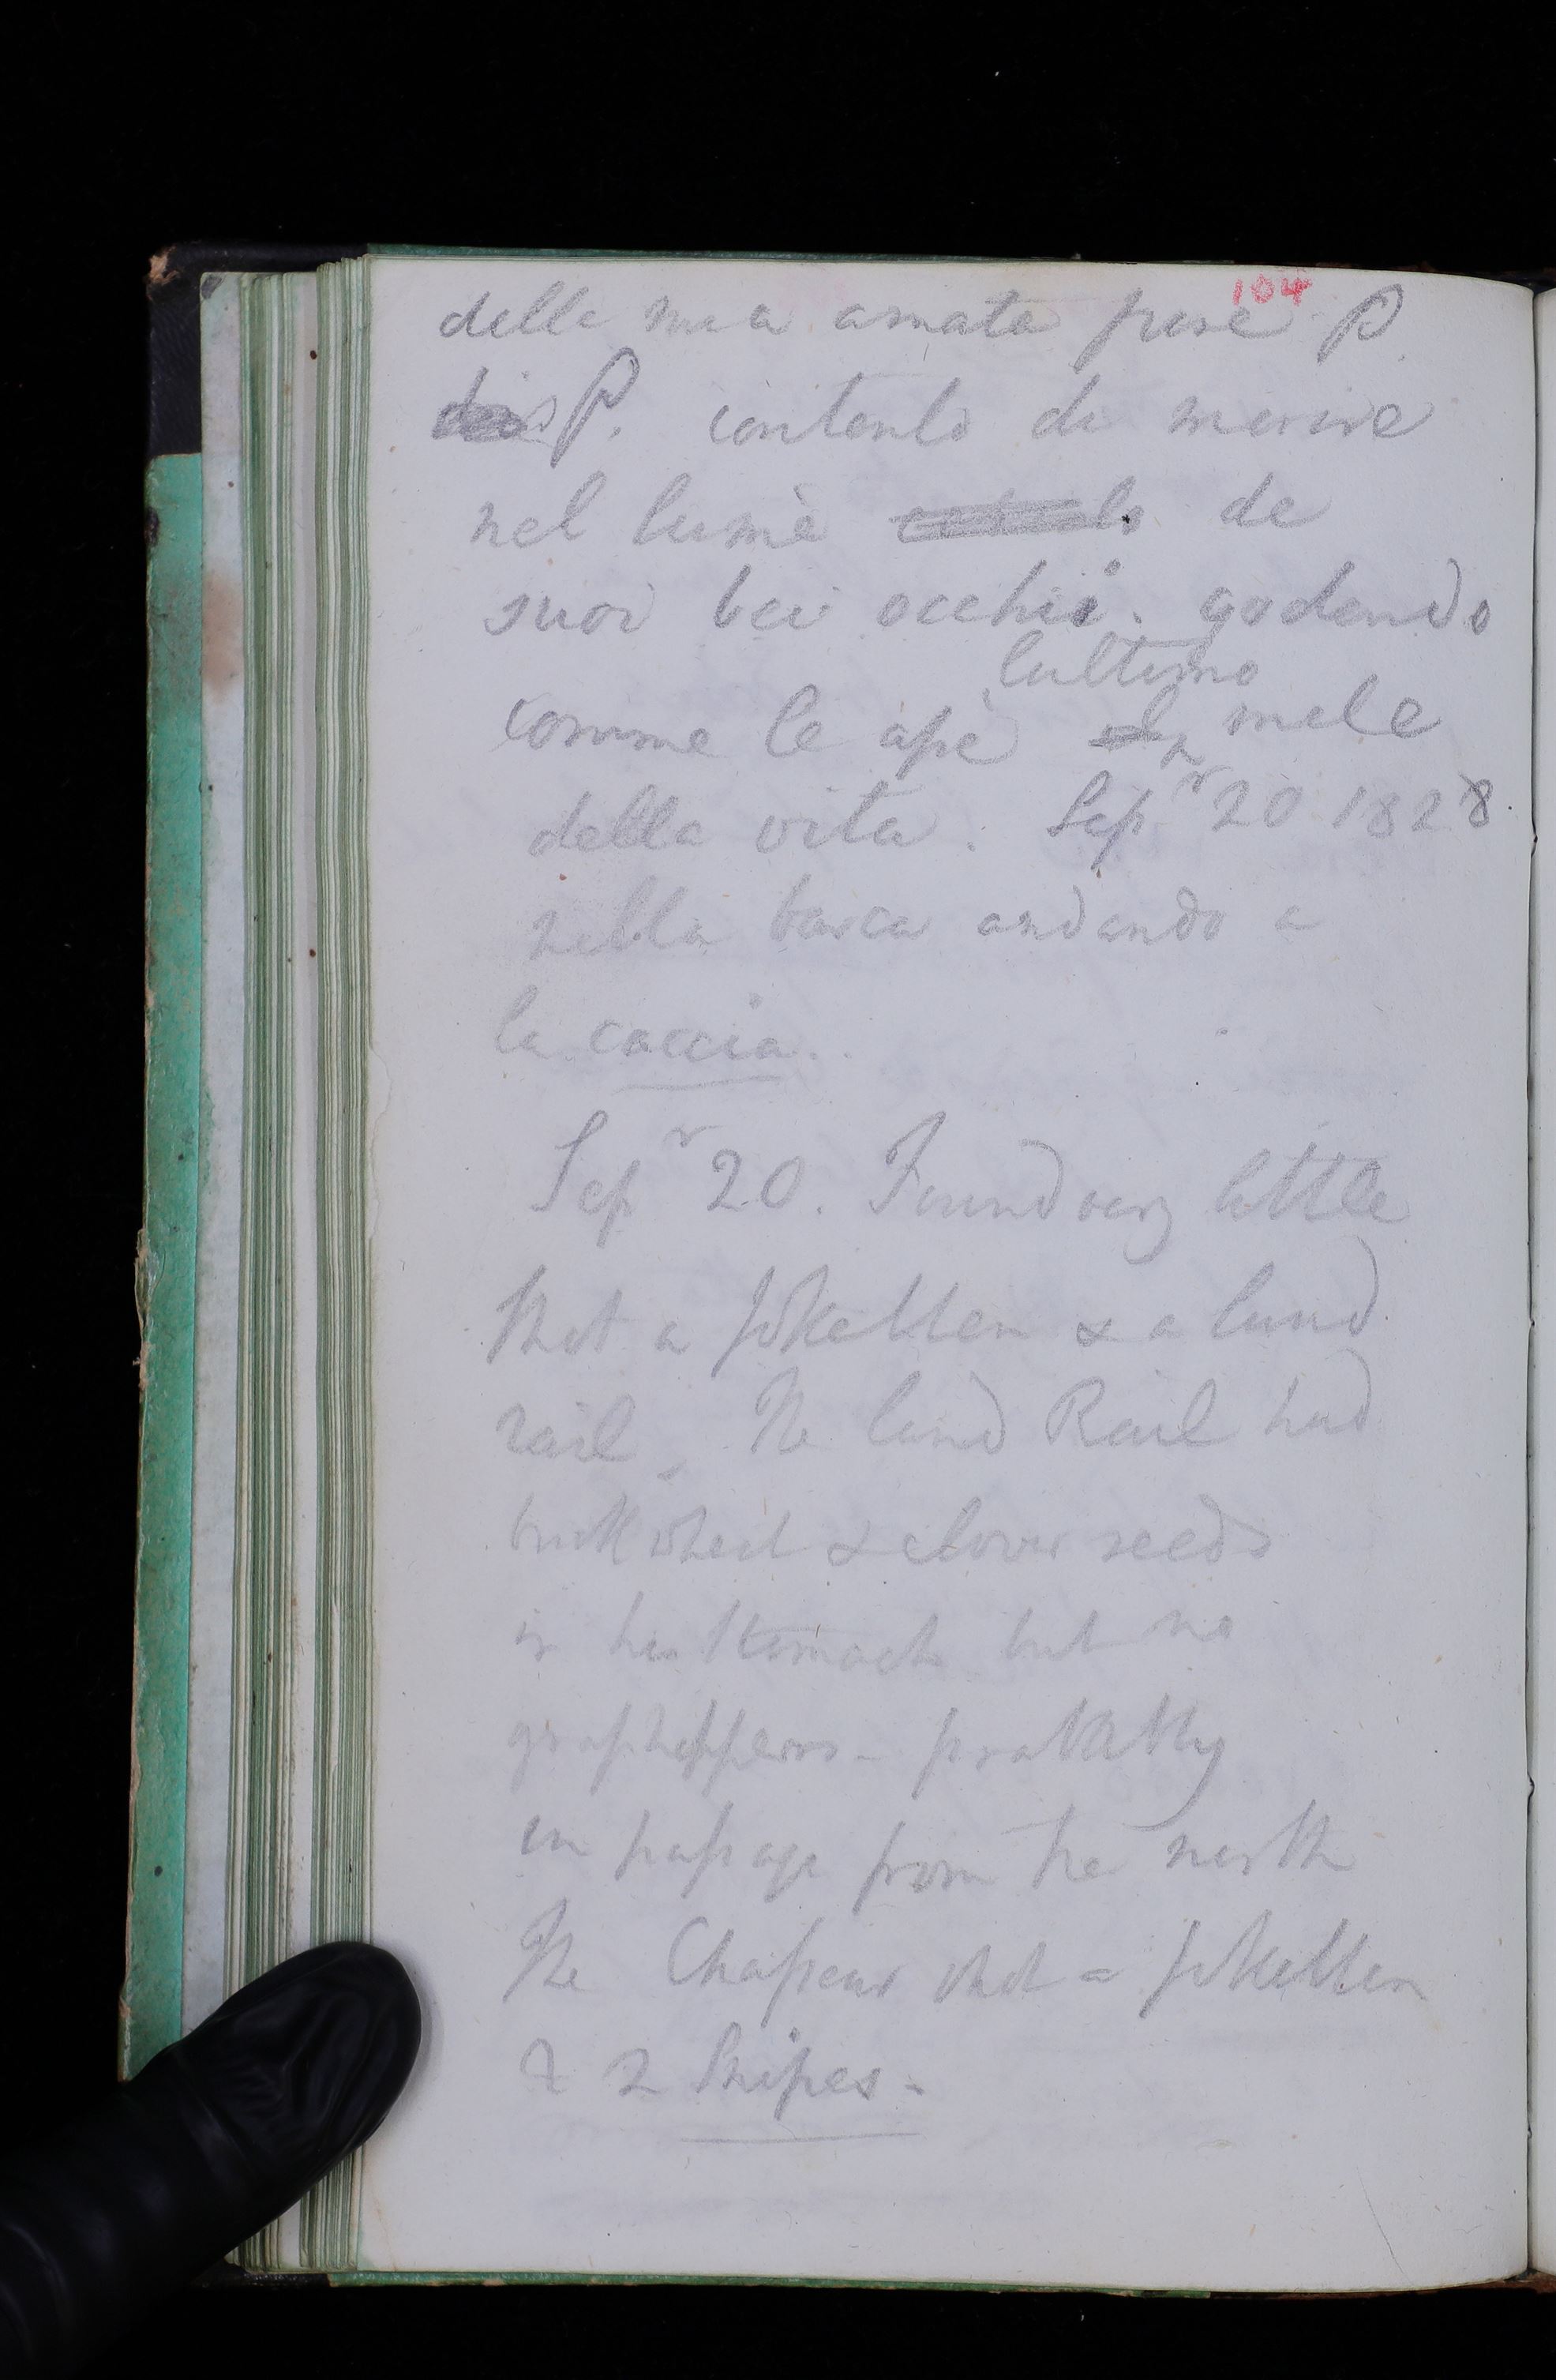 104
della mia amata pure P.
P. contento di morire
nel lume de
suoi bei occhii. godendo
lultimo
comme le ape mele
della vita. Sepr 20 1828.
nella barca andando a
la caccia.
Sepr 20. Found very little
Shot a pokellern & a land
rail. The land Rail had
buckwheat & clover seeds
in his stomach but no
grashoppers - probably
on passage from the north
The Chasseur shot a pokellern
& 2 Snipes -